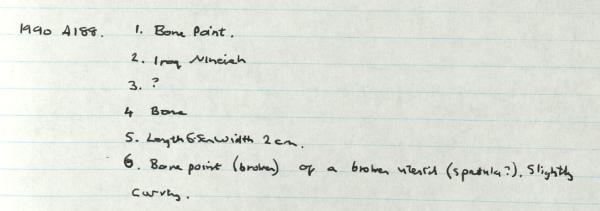 1990 A188. 1. Bone Point.
2. Iraq Nineveh
3. ?
4 Bone
5. Length 6.5cm Width 2cm.
6. Bone point (broken) of a broken utensil (spatula?). Slightly
curving.